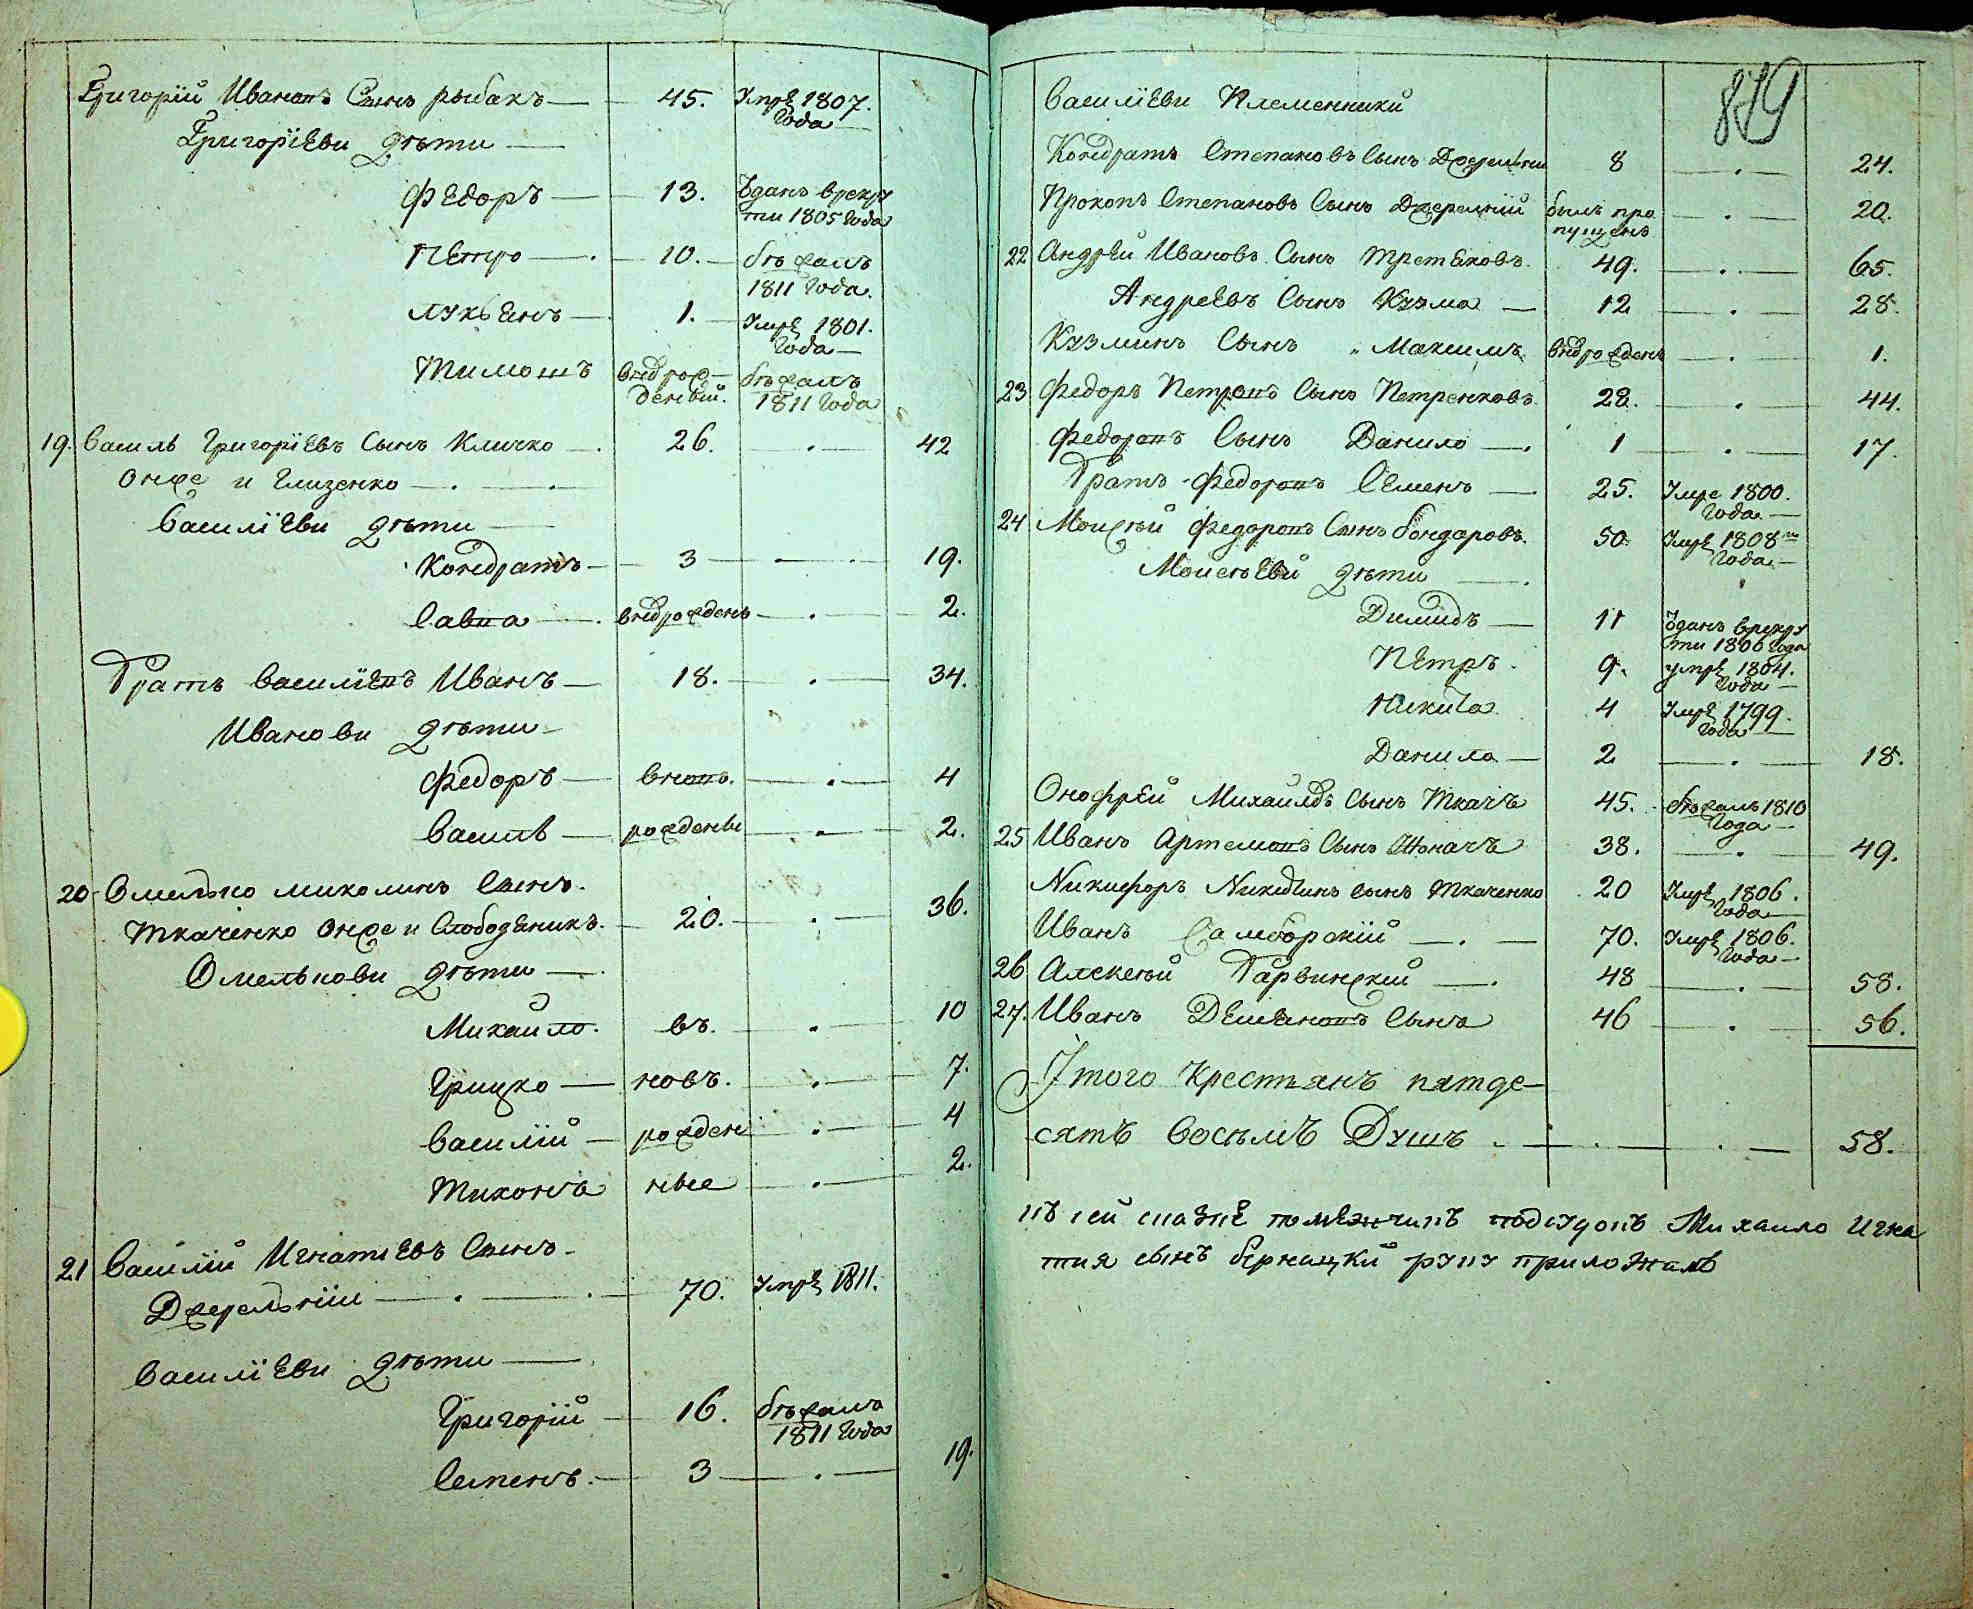 Григорій Ивановъ Сынъ рыбакъ — 45. Умре 1807. Года
Григоріеви дѣти
Федоръ — 13. Ѡданъ врекру
ти 1805 Года
Петро — 10. бѣжалъ
1811 Года.
Лукьенъ — 1. Умре 1801.
Года
Тимошъ вноврож- бѣжалъ
денній. 1811 Года
19. Василь Григоріевъ Сынъ Кличко 26. 42
Онже и Глизенко
Василіеви дѣти
Кондратъ 3 19.
Савва вноврожденъ 2.
Братъ Василіевъ Иванъ 18. 34.
Иванови дѣти
Федоръ вновъ. 4
Василь рожденни 2.
20 Омелько миколинъ Сынъ.
Ткаченко Онже и Слободеникъ. 20. 36.
Омелькови дѣти
Михайло. въ. 10
Грицко новъ. 7.
Василій рожден 4
Тихонъ ные 2.
21 Василій Игнатіевъ Сынъ
Джерельній 70. Умре 1811.
Василіеви дѣти
Григорій 16. бѣжалъ
1811 Года
Семенъ. 3 19.
879
Василіеви Племенники
Кондратъ Степановъ Сынъ Джерельни 8 24.
Прокопъ Степановъ Сынъ Джерелній былъ про 20.
пущенъ
22 Андрей Ивановъ Сынъ Третяковъ. 49. 65.
Андреевъ Сынъ Кузма 12 28.
Кузминъ Сынъ Максимъ вноврожденъ 1.
23 Федоръ Петровъ Сынъ Петренковъ. 28. 44.
Федоровъ Сынъ Данило 1 17.
Братъ Федоровъ Семенъ 25. Умре 1800.
Года
24 Моисѣй Федоровъ Сынъ Бондаровъ. 50. Умре 1808го
Года
Моисѣеви дѣти
Димидъ 11 Ѡданъ врекру
ти 1806 Года
Петръ. 9. умре 1804.
Года
Никита 4 Умре 1799.
Года
Данила 2 18.
Онофрей Михайловъ Сынъ Ткачъ 45. бѣжалъ 1810
Года
25 Иванъ Артемовъ Сынъ Ткачъ 38. 49.
Никифоръ Никитинъ сынъ Ткаченко 20 Умре 1806.
Года
Иванъ Самборскій 70. Умре 1806.
Года
26 Алексѣй Гарвинскій 48 58.
27. Иванъ Демяновъ Сынъ 46 56.
Итого Крестьянъ пятде-
сятъ восъмъ Душъ 58.
къ сей сказке помежчикъ подсудокъ Михаило Игна
тия сынъ берницки руку приложилъ